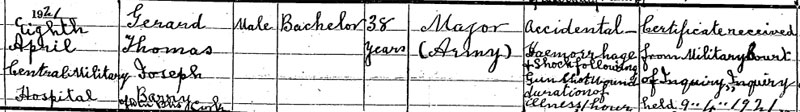 1921
Eighth
April
Central Military
Hospital
Gerard
Thomas
Joseph
Barry
Male
Bachelor
38
years
Major
(Army)
Accidental
Haemorrhage
& Shock following
Gun Shot Wound
duration of
illness 1 hour
Certificate received
from Military Court
of Inquiry, Inquiry
held 9.. 4.. 1921..